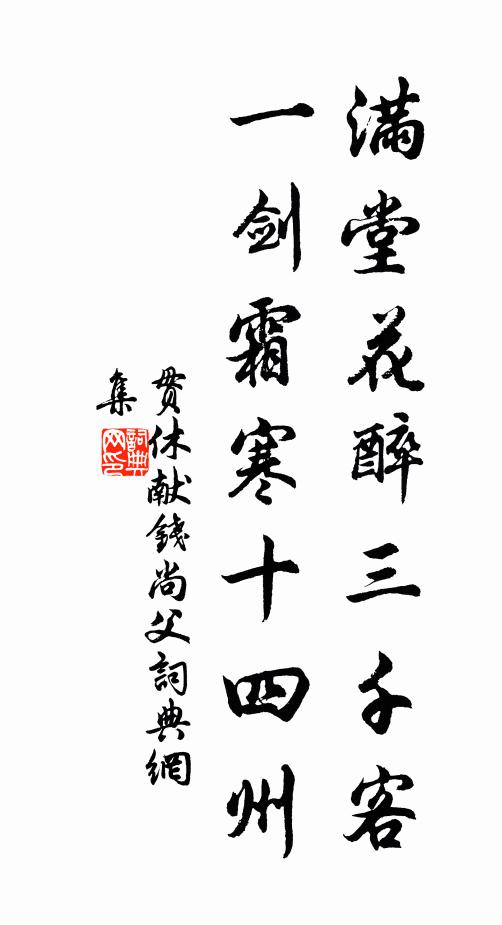 满堂花醉三千客
一剑霜寒十四州
贯休献錢尚父詞典網
集
詞典
网印